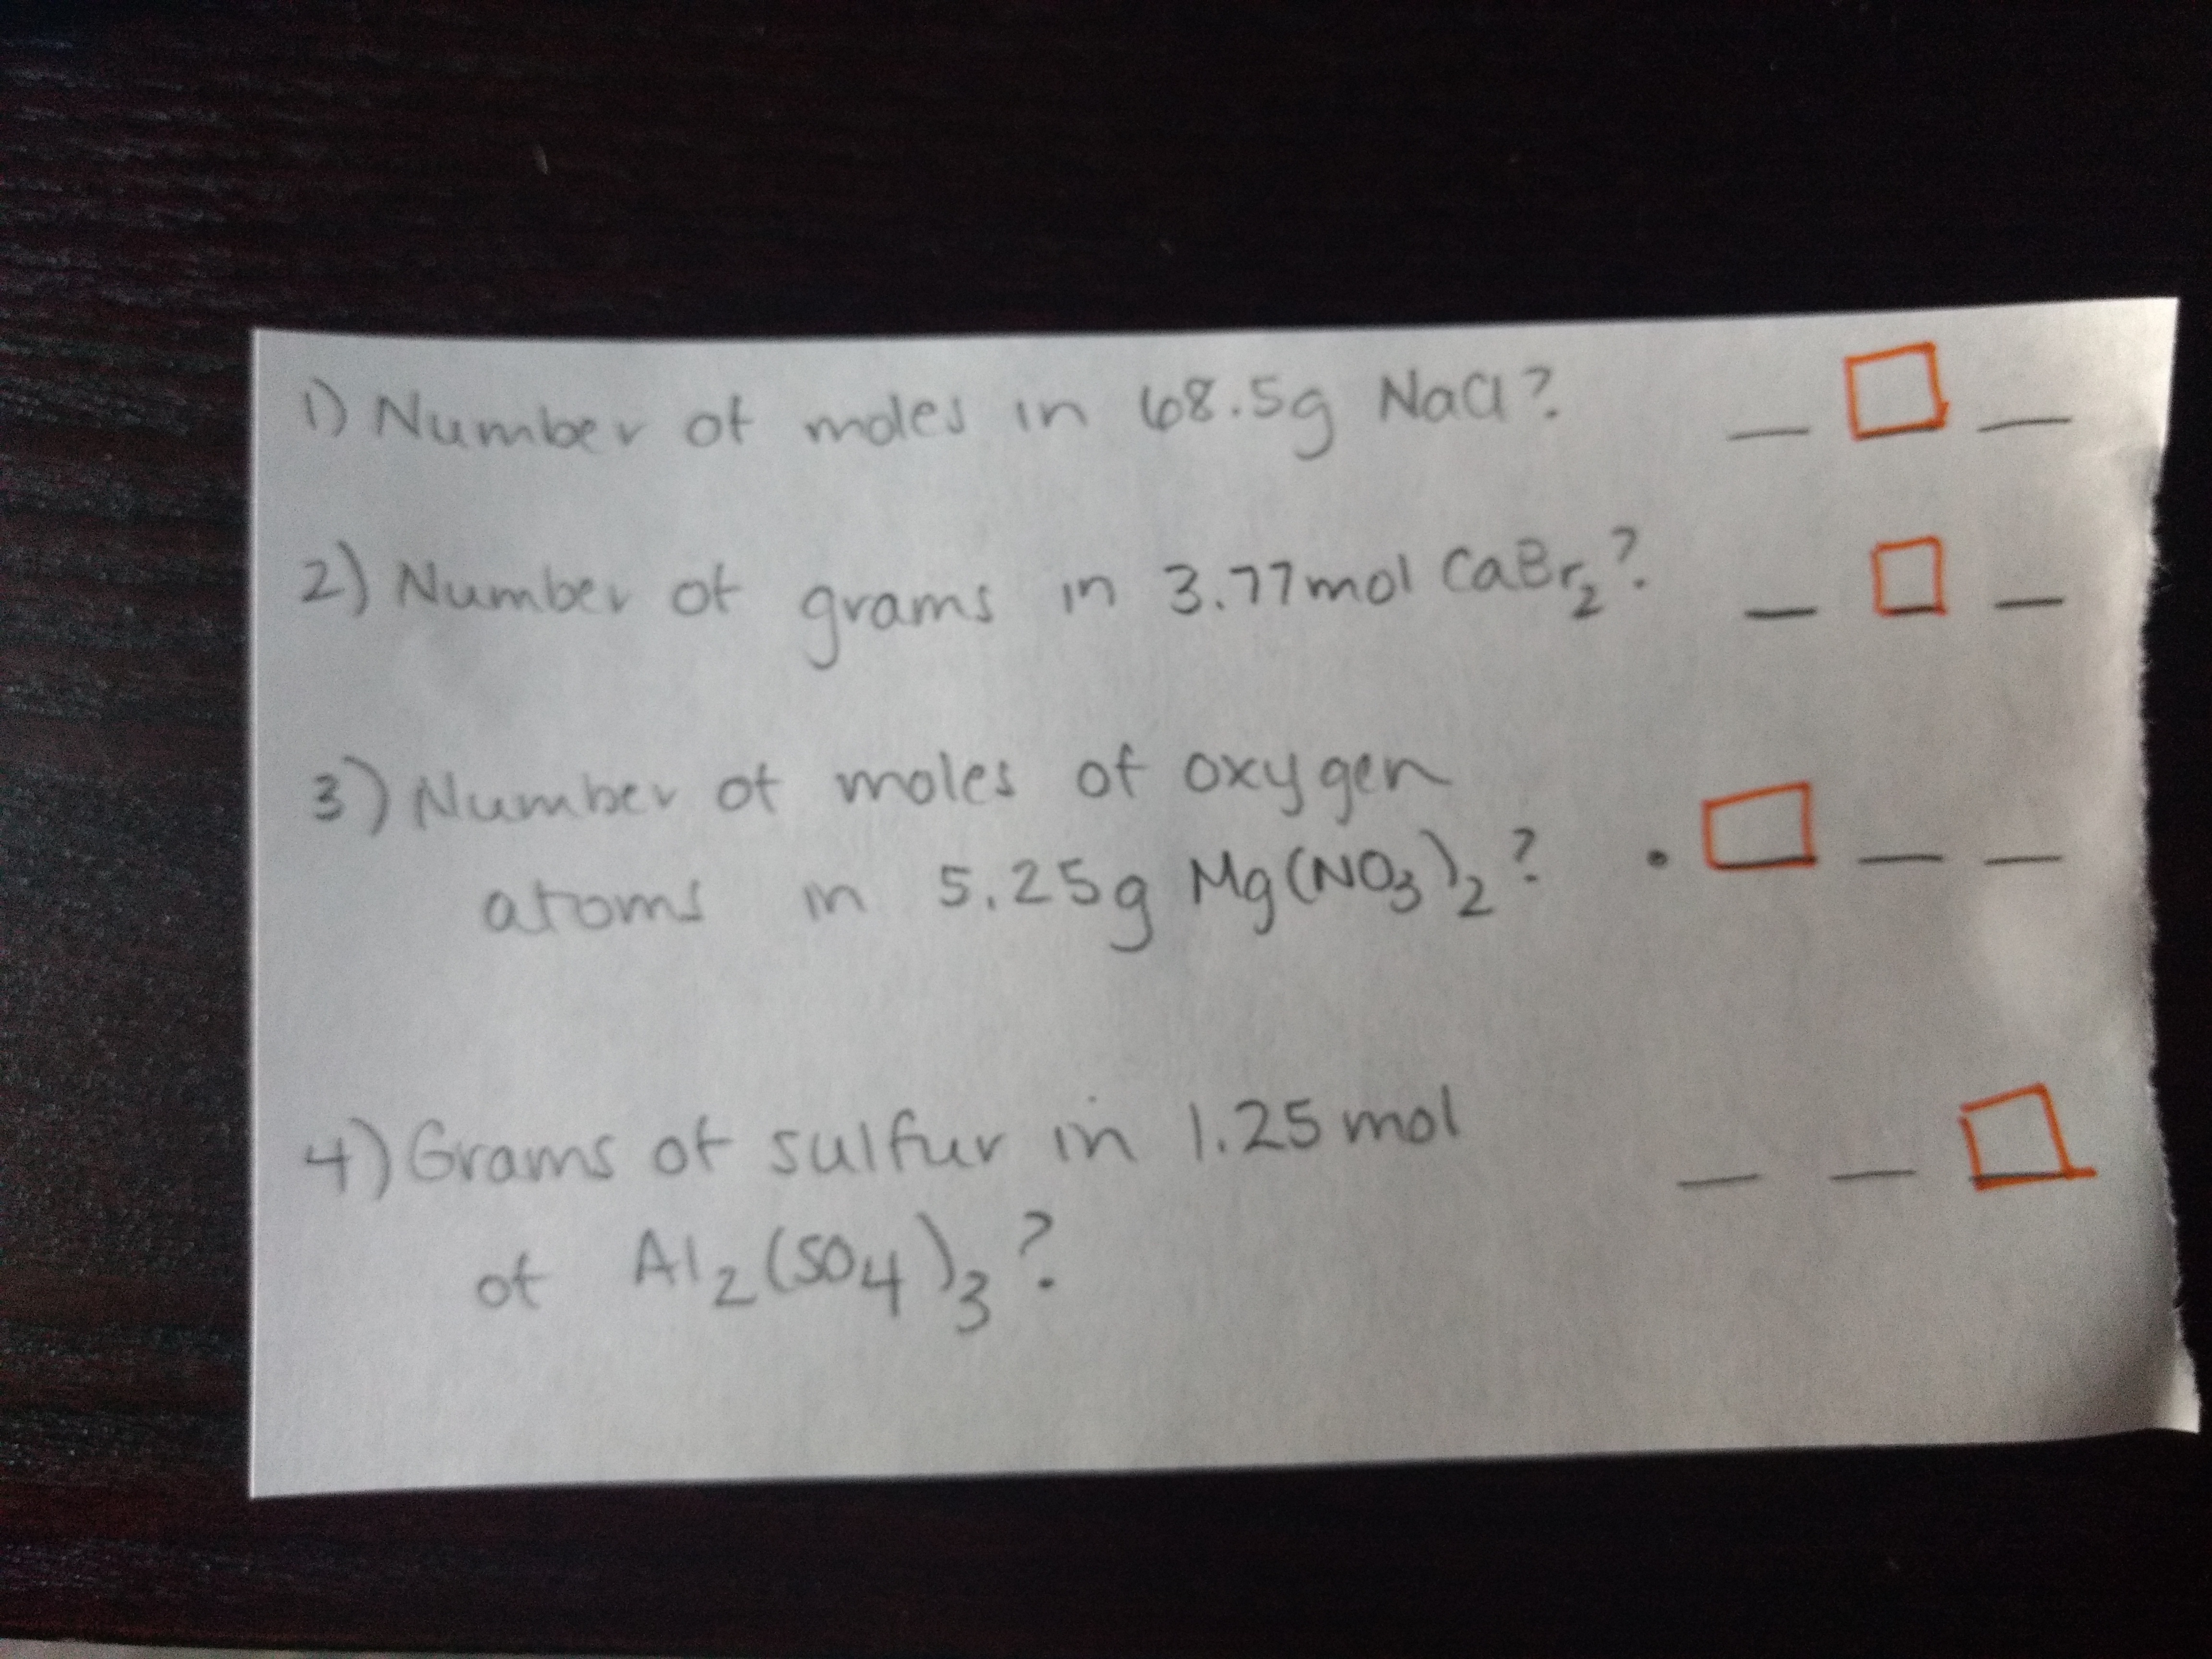 1) Number of moles in 68.5g NaCl? _ _ _
2) Number of grams in 3.77mol CaBr₂? _ _ _
3) Number of moles of oxygen
atoms in 5.25g Mg(NO₃)₂? . _ _ _
4) Grams of sulfur in 1.25 mol _ _ _
of Al₂(SO₄)₃?